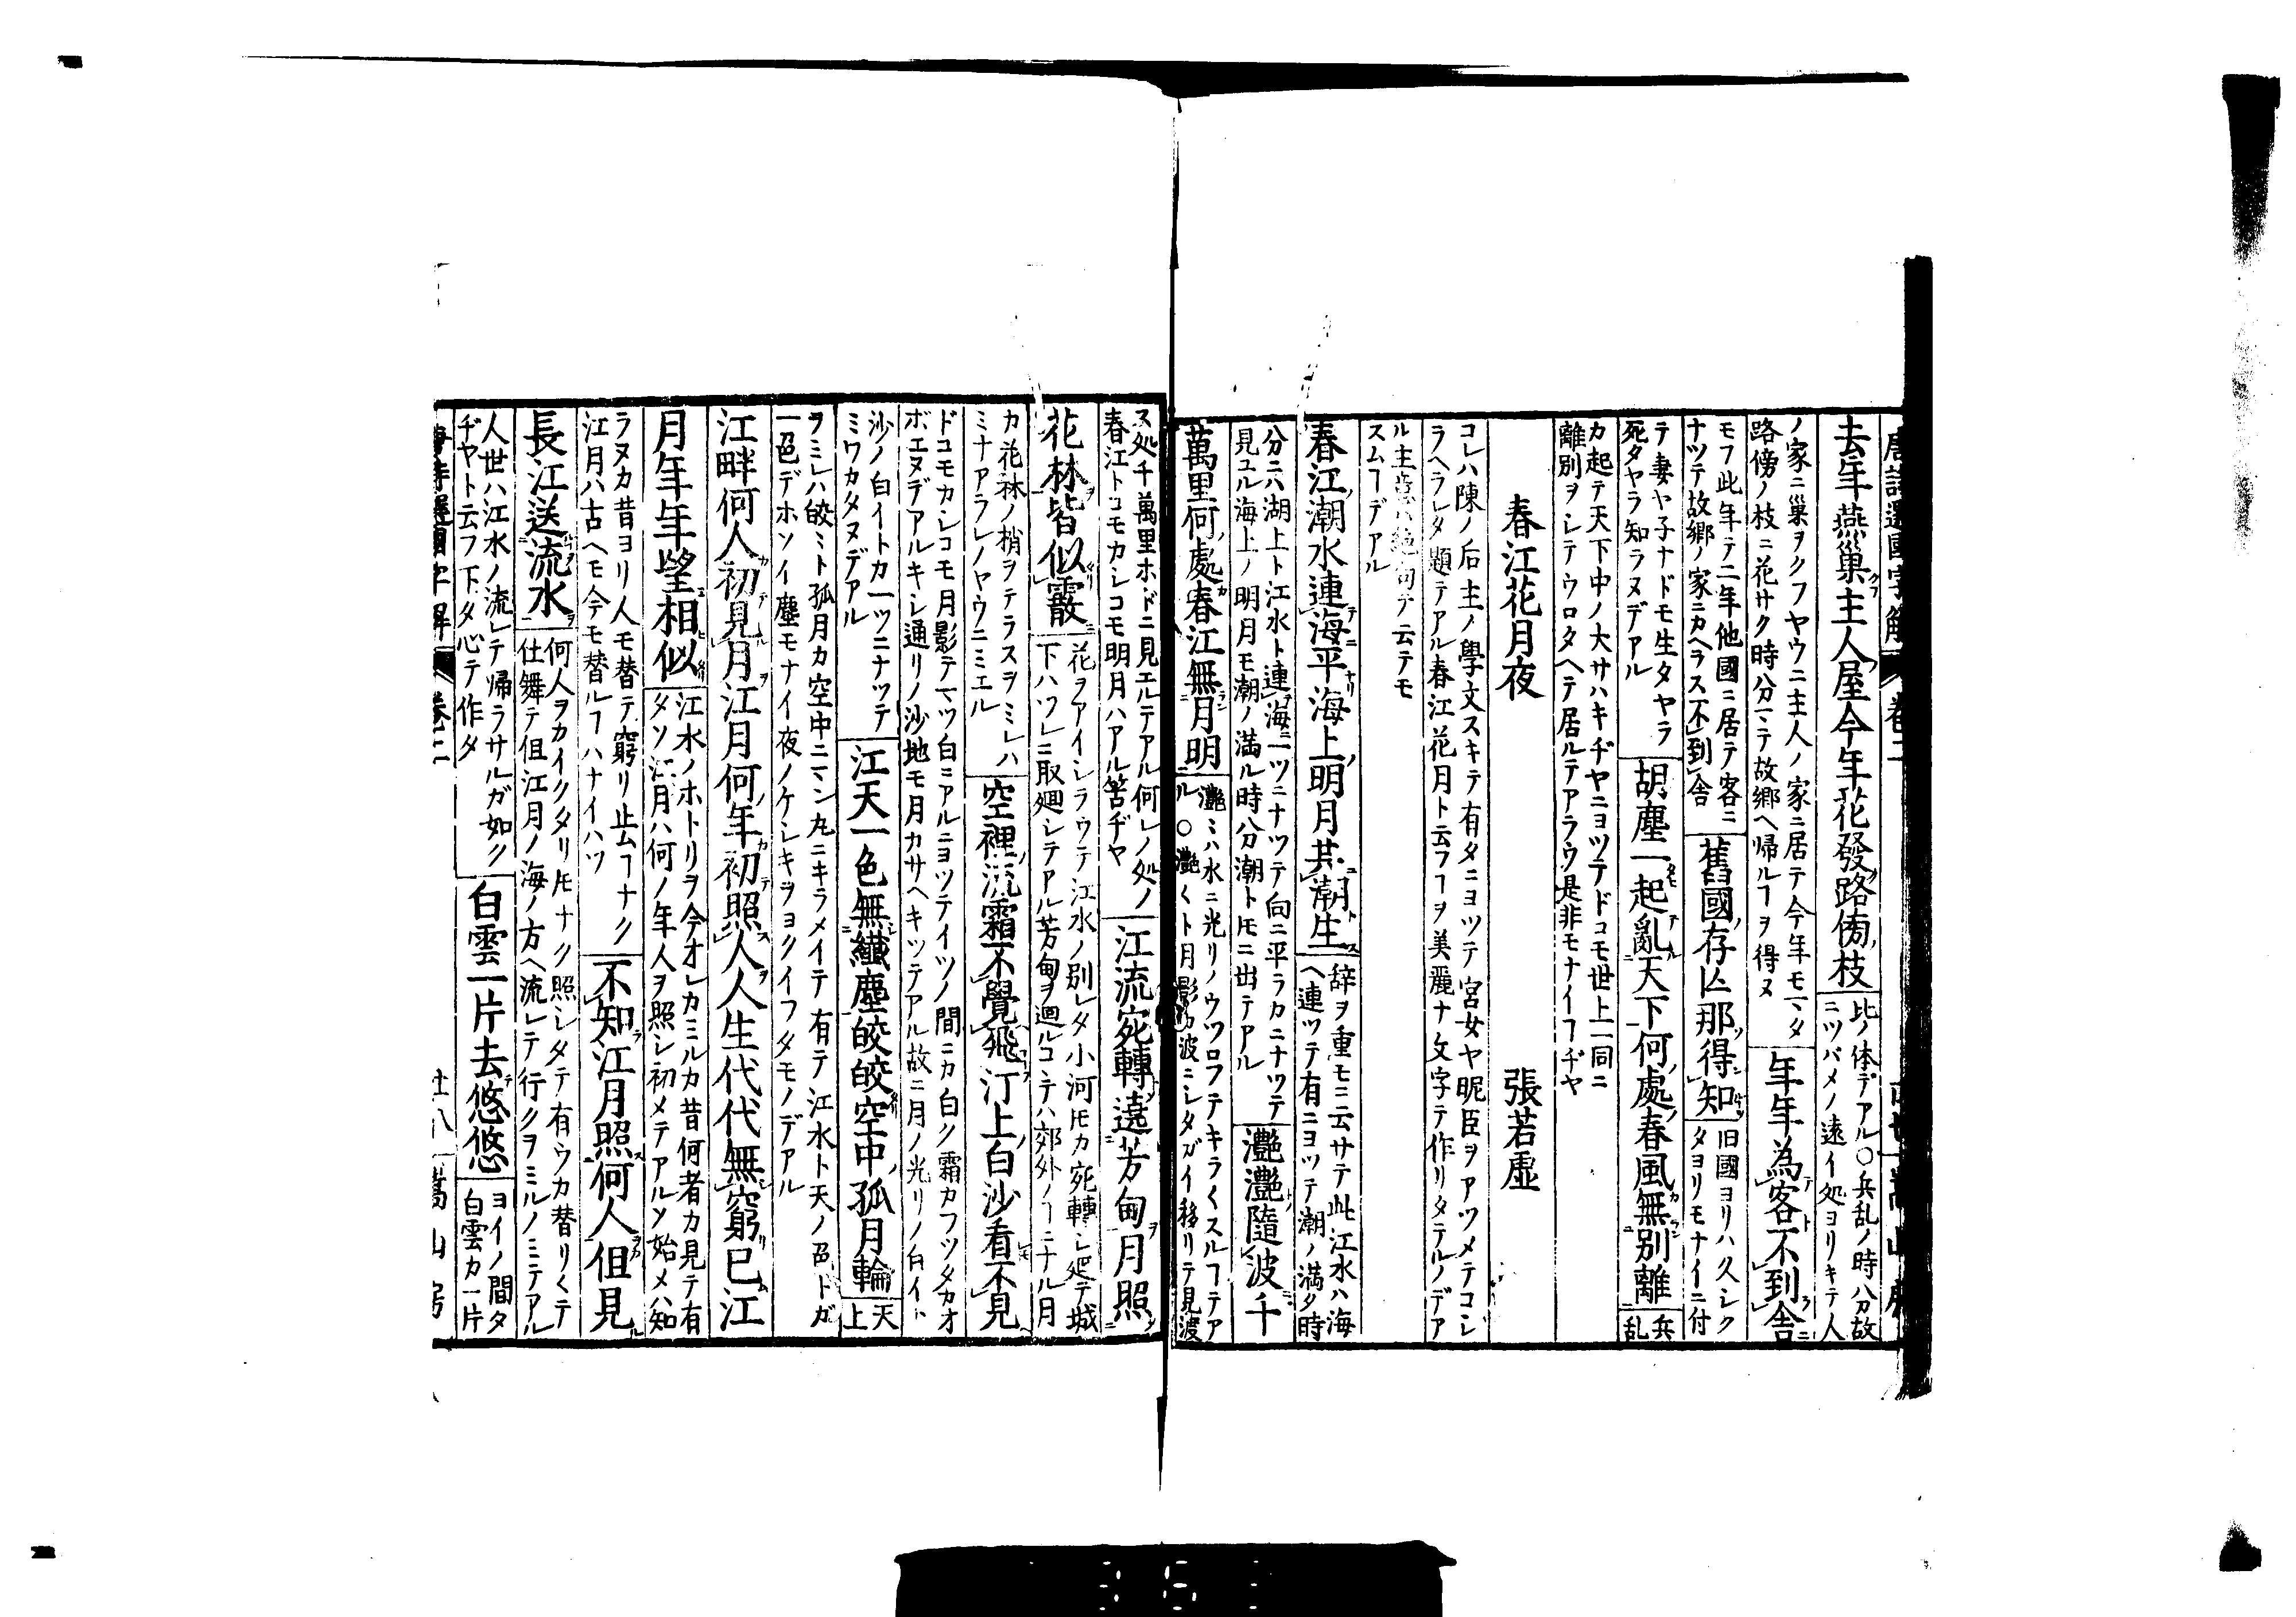 唐詩選國字解 卷二
去年燕巢主人屋今年花發路傍枝
此ノ体デアル○兵乱ノ時分故
ニツバメノ遠イ処ヨリキテ人
ノ家ニ巣ヲクフヤウニ主人ノ家ニ居テ今年モマタ
路傍ノ枝ニ花サク時分マテ故郷ヘ帰ルヿヲ得ヌ
年年為客不到舍
モフ此年テ二年他國ニ居テ客ニ
ナツテ故郷ノ家ニカヘラス不到舎
舊國存亡那得知
旧國ヨリハ久シク
タヨリモナイニ付
テ妻ヤ子ナドモ生タヤラ
死タヤラ知ラヌデアル
胡塵一起亂天下何處春風無別離
兵
乱
カ起テ天下中ノ大サハキヂヤニヨツテドコモ世上一同ニ
離別ヲシテウロタヘテ居ルテアラウ是非モナイヿヂヤ
春江花月夜 張若虛
コレハ陳ノ后主ノ學文スキテ有タニヨツテ宮女ヤ昵臣ヲアツメテコシ
ラヘラレタ題テアル春江花月ト云フヿヲ美麗ナ文字テ作リタテルノデア
ル主意ハ絶句テ云テモ
スムヿデアル
春江潮水連海平海上明月共潮生
辞ヲ重モニ云サテ此江水ハ海
ヘ連ツテ有ニヨツテ潮ノ満タ時
分ニハ湖上ト江水ト連海一ツニナツテ向ニ平ラカニナツテ
見ユル海上ノ明月モ潮ノ満ル時分潮トモニ出テアル
灔灔隨波千
萬里何處春江無月明
灔ミハ水ニ光リノウツロフテキラくスルヿテア
ル○灔くト月影カ波ニシタガイ移リテ見渡
ス処千萬里ホドニ見エルテアル何レノ処ノ
春江トコモカシコモ明月ハアル筈ヂヤ
江流宛轉遶芳甸月照
花林皆似霰
花ヲアイシラウテ江水ノ別レタ小河モカ宛轉シ廻テ城
下ハワレニ取廻シテアル芳甸ヲ遶ルコヽテハ郊外ノヿニナル月
カ花林ノ梢ヲテラスヲミレハ
ミナアラレノヤウニミエル
空裡流霜不覺飛汀上白沙看不見
ドコモカシコモ月影テマツ白ニアルニヨツテイツノ間ニカ白ク霜カフツタカオ
ボエヌデアルキシ通リノ沙地モ月カサヘキツテアル故ニ月ノ光リノ白イト
沙ノ白イトカ一ツニナツテ
ミワカタヌデアル
江天一色無纖塵皎皎空中孤月輪
天
上
ヲミレハ皎ミト孤月カ空中ニマン丸ニキラメイテ有テ江水ト天ノ色トガ
一色デホソイ塵モナイ夜ノケシキヲヨクイフタモノデアル
江畔何人初見月江月何年初照人人生代代無窮已江
月年年望相似
江水ノホトリヲ今オレカミルカ昔何者カ見テ有
タソ江月ハ何ノ年人ヲ照シ初メテアルソ始メハ知
ラヌカ昔ヨリ人モ替テ窮リ止ムヿナク
江月ハ古ヘモ今モ替ルヿハナイハツ
不知江月照何人但見
長江送流水
何人ヲカイクタリモナク照シタテ有ウカ替リくテ
仕舞テ但江月ノ海ノ方ヘ流レテ行クヲミルノミテアル
人世ハ江水ノ流レテ帰ラサルガ如ク
ヂヤト云フ下タ心テ作タ
白雲一片去悠悠
ヨイノ間タ
白雲カ一片